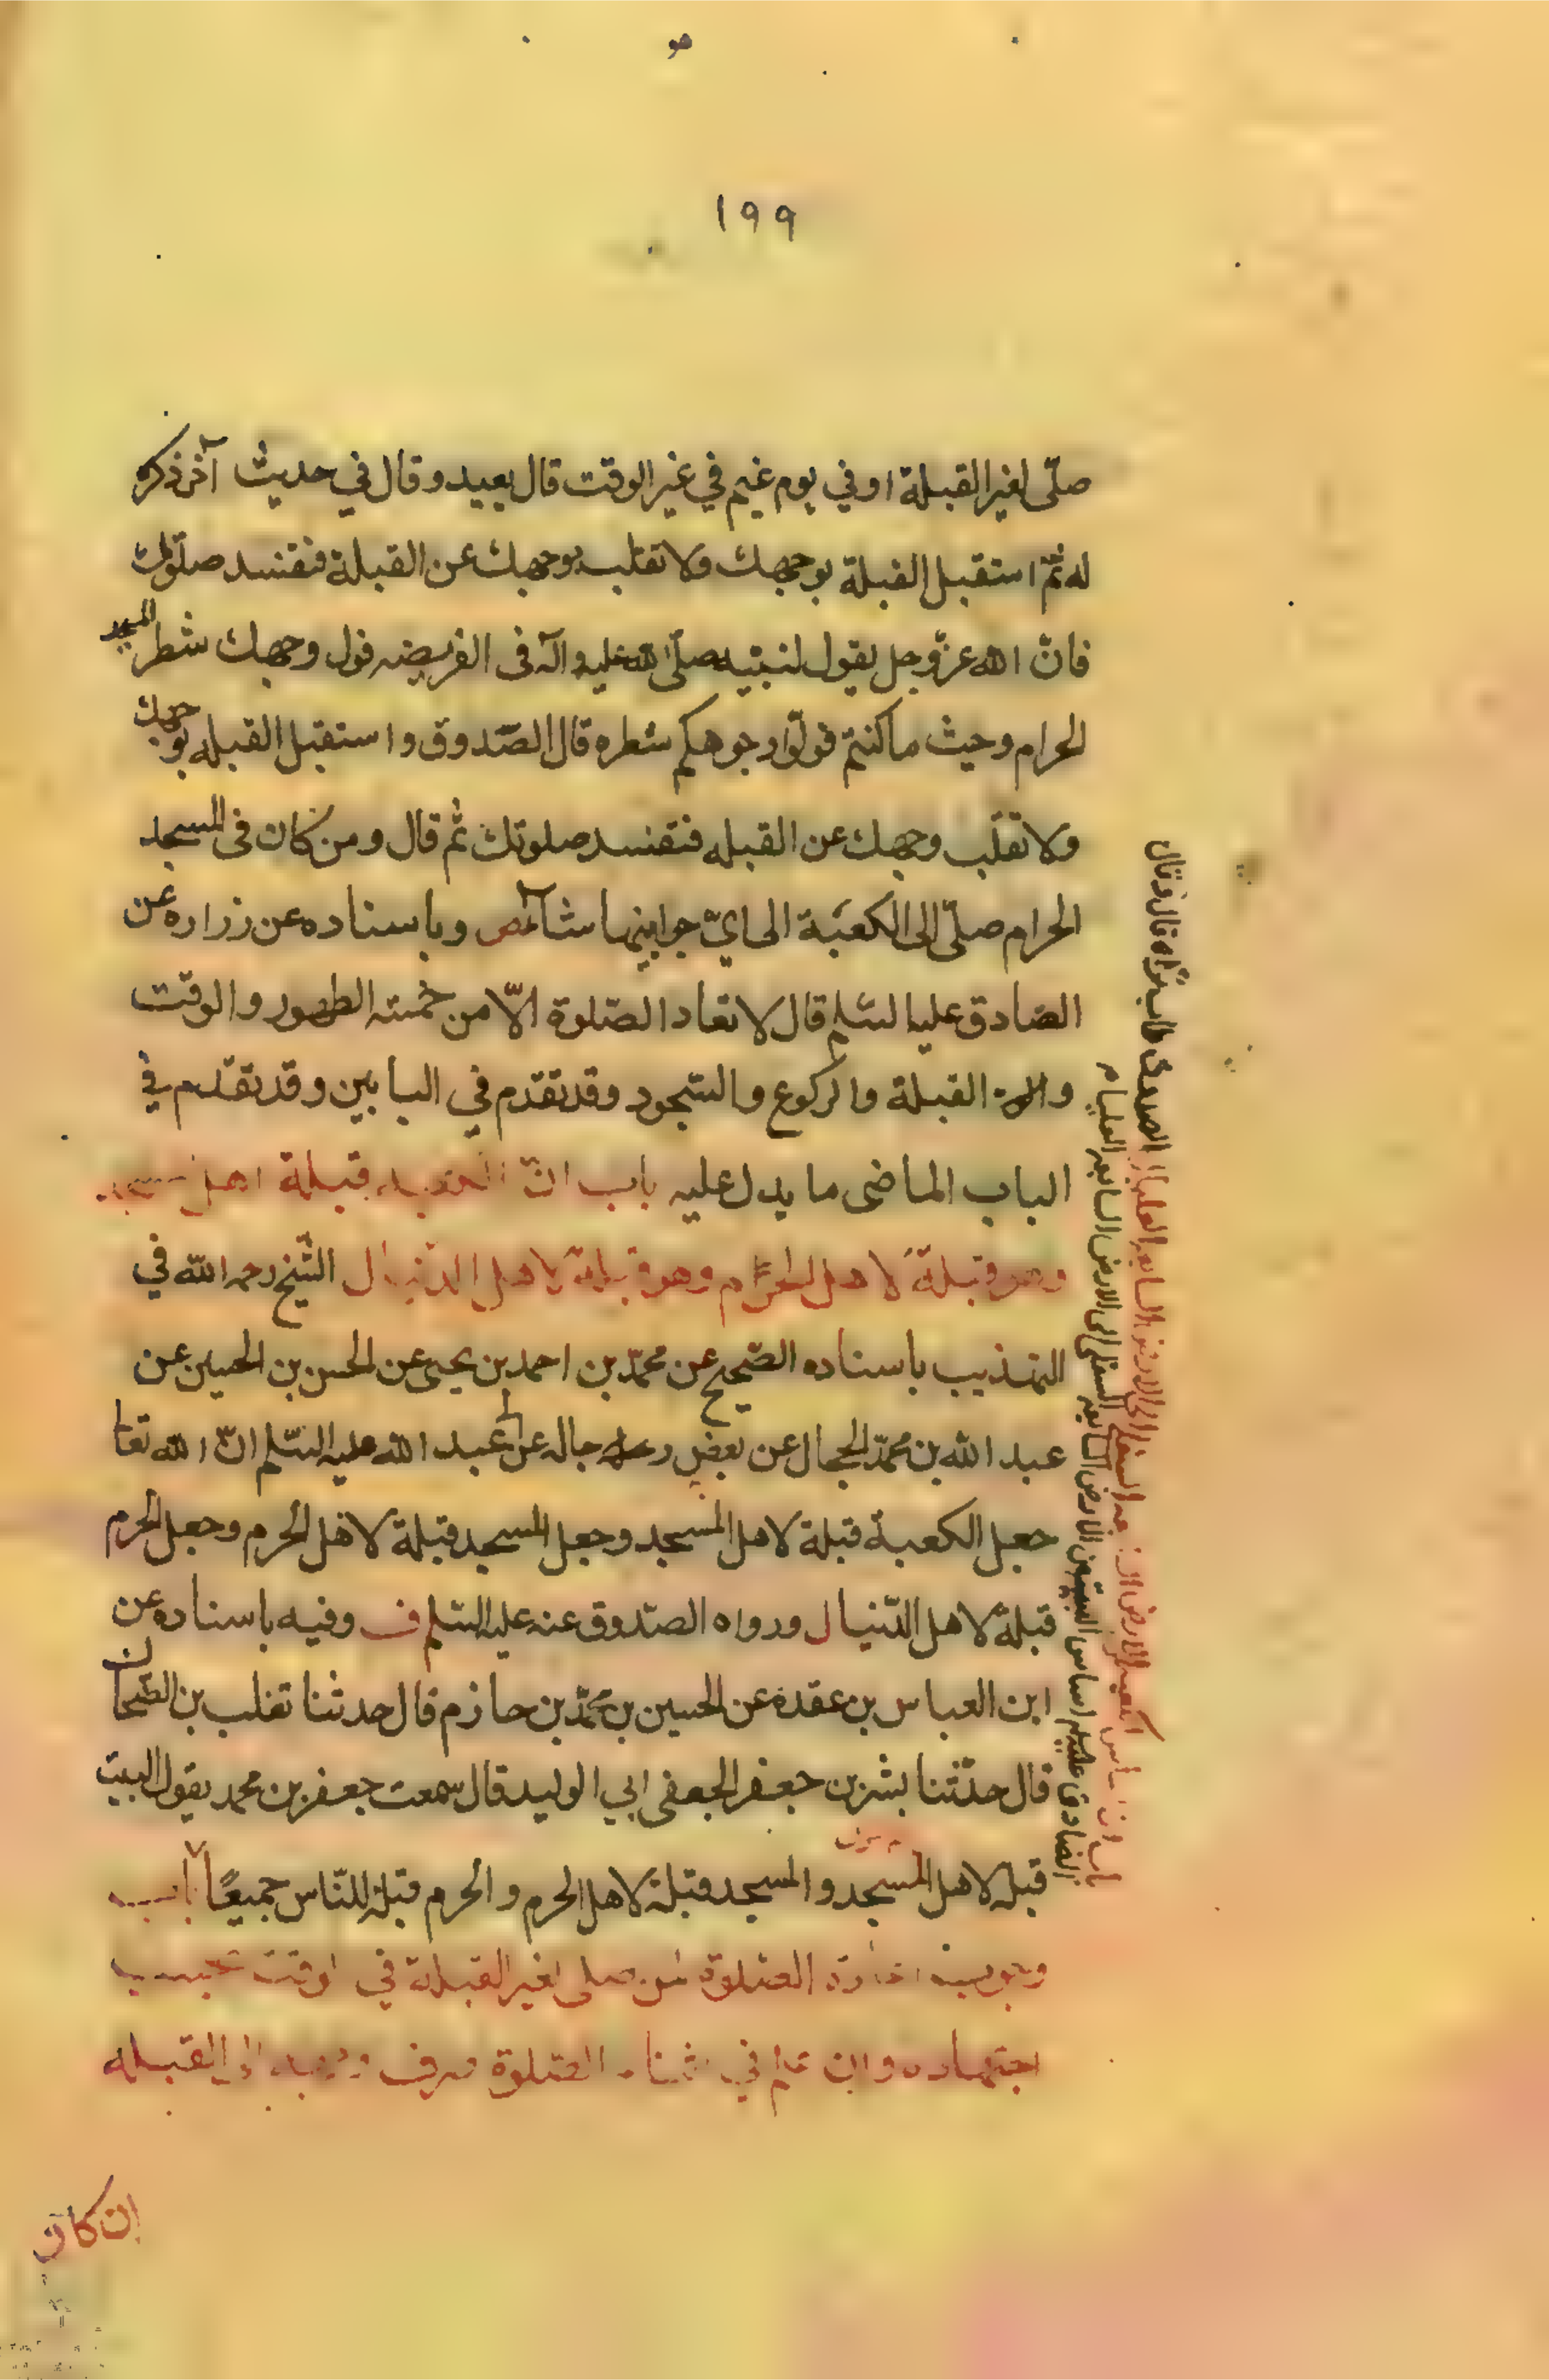 هو
١٩٩
صلّى لغير القبلة او في يوم غيم في غير الوقت قال يعيد و قال في حديث آخر ذكره
له ثمّ استقبل القبلة بوجهك ولا تقلب بوجهك عن القبلة فتفسد صلوتك
فانّ الله عزّ وجل يقول لنبيّه صلّى الله عليه وآله فى الفريضه فول وجهك شطر المسجد
الحرام وحيث ما كنتم فولّوا وجوهكم شطره قال الصّدوق و استقبل القبله بوجهك
ولا تقلّب وجهك عن القبله فتفسد صلوتك ثم قال و من كان فى المسجد
الحرام صلّى الى الكعبة الى ايّ جوانبها شاء وباسناده عن زراره عن
الصّادق عليه السّلم قال لا تعاد الصّلوة الّا من خمسة الطهور والوقت
و القبلة والركوع والسّجود وقد تقدّم في البابين وقد تقدم في
الباب الماضى ما يدل عليه باب انّ الكعبه قبلة اهل المسجد
وهو قبلة لاهل الحرام وهو قبلة لاهل الدّنيا ل الشّيخ رحمه الله في
التهذيب باسناده الصّحيح عن محمّد بن احمد بن يحيى عن الحسن بن الحسين عن
عبد الله بن محمّد الحجال عن بعض رجاله عن ابى عبد الله عليه السّلم انّ الله تعالى
جعل الكعبة قبلة لاهل المسجد وجعل المسجد قبلة لاهل الحرم وجعل الحرم
قبلة لاهل الدّنيا ل ورواه الصّدوق عنه عليه السّلم ف وفيه باسناده عن
ابن العباس بن عقدة عن الحسين بن محمّد بن حازم قال حدثنا تغلب بن الضّحاك
قال حدّثنا بشر بن جعفر الجعفى ابي الوليد قال سمعت جعفر بن محمد يقول البيت
قبلة لاهل المسجد والمسجد قبلة لاهل الحرم والحرم قبلة للنّاس جميعًا باب
وجوب اعادة الصّلوة لمن صلى لغير القبلة في الوقت بحسب
اجتهاده وان علم في اثناء الصّلوة صرف وجهه الى القبله
ان كان
باب ان اساس الكعبة من الارض السابعه السفلى الى الارض السابعه العليا الصدوق طاب ثراه قال وقال
الصادق عليه اساس البيت من الارض السابعه السفلى الى الارض السابعه العليا